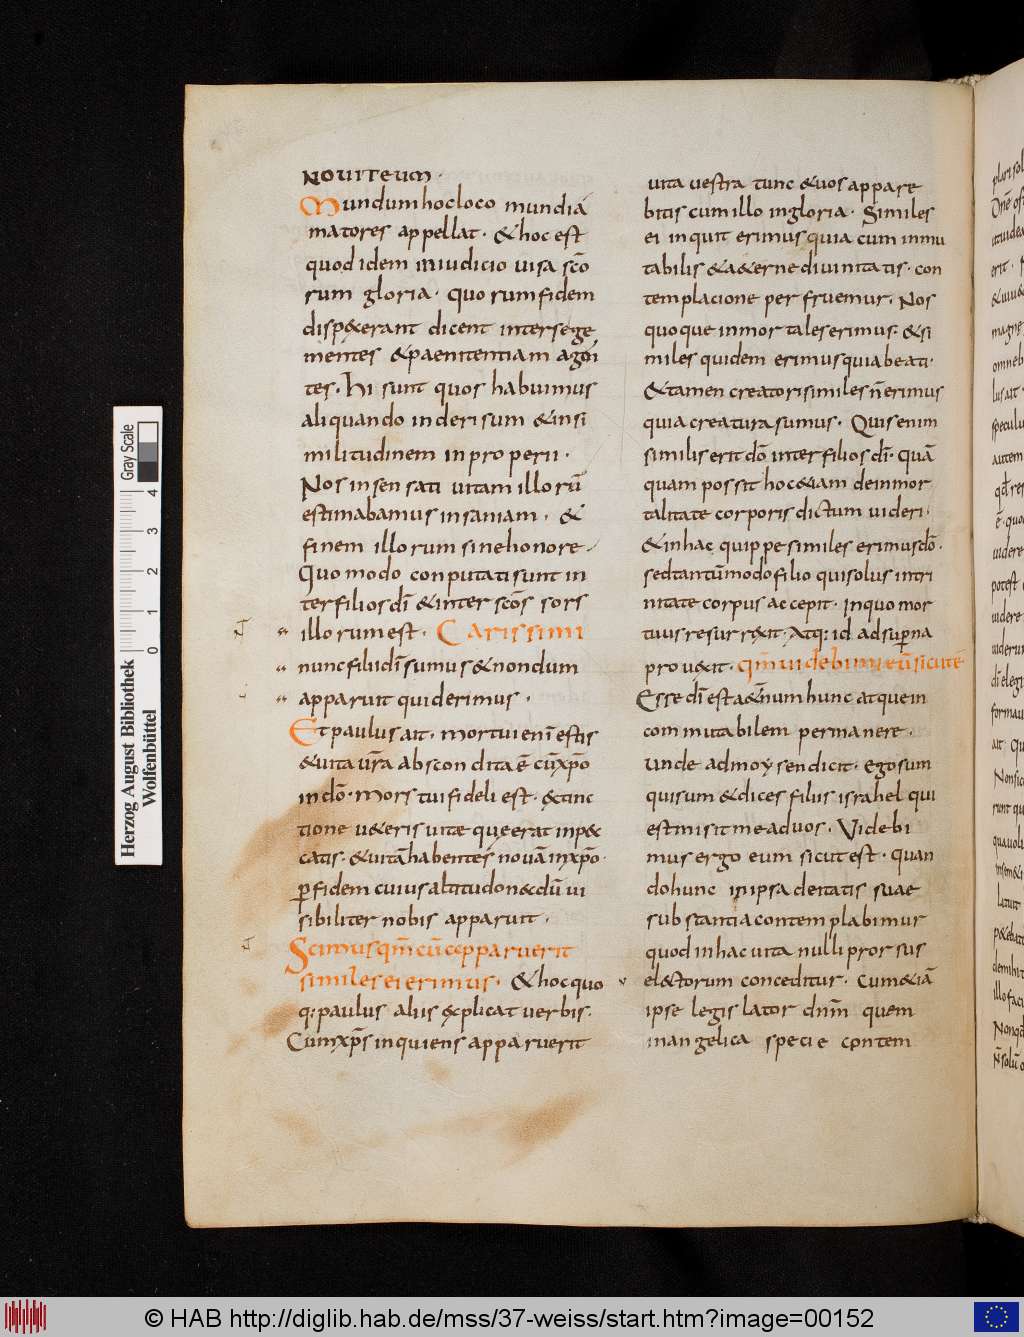 NOVITEUM.
Mundum hoc loco mundi a
matores appellat. & hoc est
quod idem in iudicio uisa sc̄o
rum gloria. quorum fidem
disp&erant dicent inter se ge
mentes & paenitentiam agen
tes. Hi sunt quos habuimus
aliquando in derisum & in si
militudinem inproperii.
Nos insensati uitam illorū
estimabamus insaniam. &
finem illorum sine honore.
Quomodo conputati sunt in
ter filios dī & inter scōs sors
illorum est. Carissimi
nunc filii dī sumus & nondum
apparuit quid erimus.
Et paulus ait. mortui enī estis
& uita ūra abscondita ē cū xp̄o
in dō. Mors tui fideli est. & tinc
tione u&eris uitæ quę erat in pec
catis. & uitā habentes nouā in xp̄o.
p̱ fidem cuius altitudo n& dū ui
sibiliter nobis apparuit.
Scimus qm̄ cū apparuerit
similes ei erimus. & hoc quo
q: paulus aliis explicat uerbis.
Cum xp̄s inquiens apparuerit
uita uestra tunc & uos appare
bitis cum illo in gloria. Similes
ei inquit erimus quia cum inmu
tabilis & a&erne diuinitatis. con
templacione perfruemur. Nos
quoque inmortales erimus. & si
miles quidem erimus quia beati.
& tamen creatori similes n̄ erimus
quia creatura sumus. Quis enim
similis erit dō inter filios dī. quā
quam possit hoc &iam de inmor
talitate corporis dictum uideri.
& in hac quippe similes erimus dō.
sed tantūmodo filio qui solus in tri
nitate corpus accepit. in quo mor
tuus resurrexit. Atq: id ad superna
prouexit. qm̄ uidebimus eū sicuti ē
Esse dī est a&ernum hunc atque in
commutabilem permanere.
Unde ad moysen dicit. ego sum
qui sum & dices filiis israhel qui
est misit me ad uos. Videbi
mus ergo eum sicut est. quan
do hunc in ipsa deitatis suae
substantia contemplabimur
quod in hac uita nulli prorsus
electorum conceditur. Cum &iā
ipse legislator dnm̄ quem
in angelica specie contem
Herzog August Bibliothek
Wolfenbüttel
0 1 2 3 4
Gray Scale
© HAB http://diglib.hab.de/mss/37-weiss/start.htm?image=00152